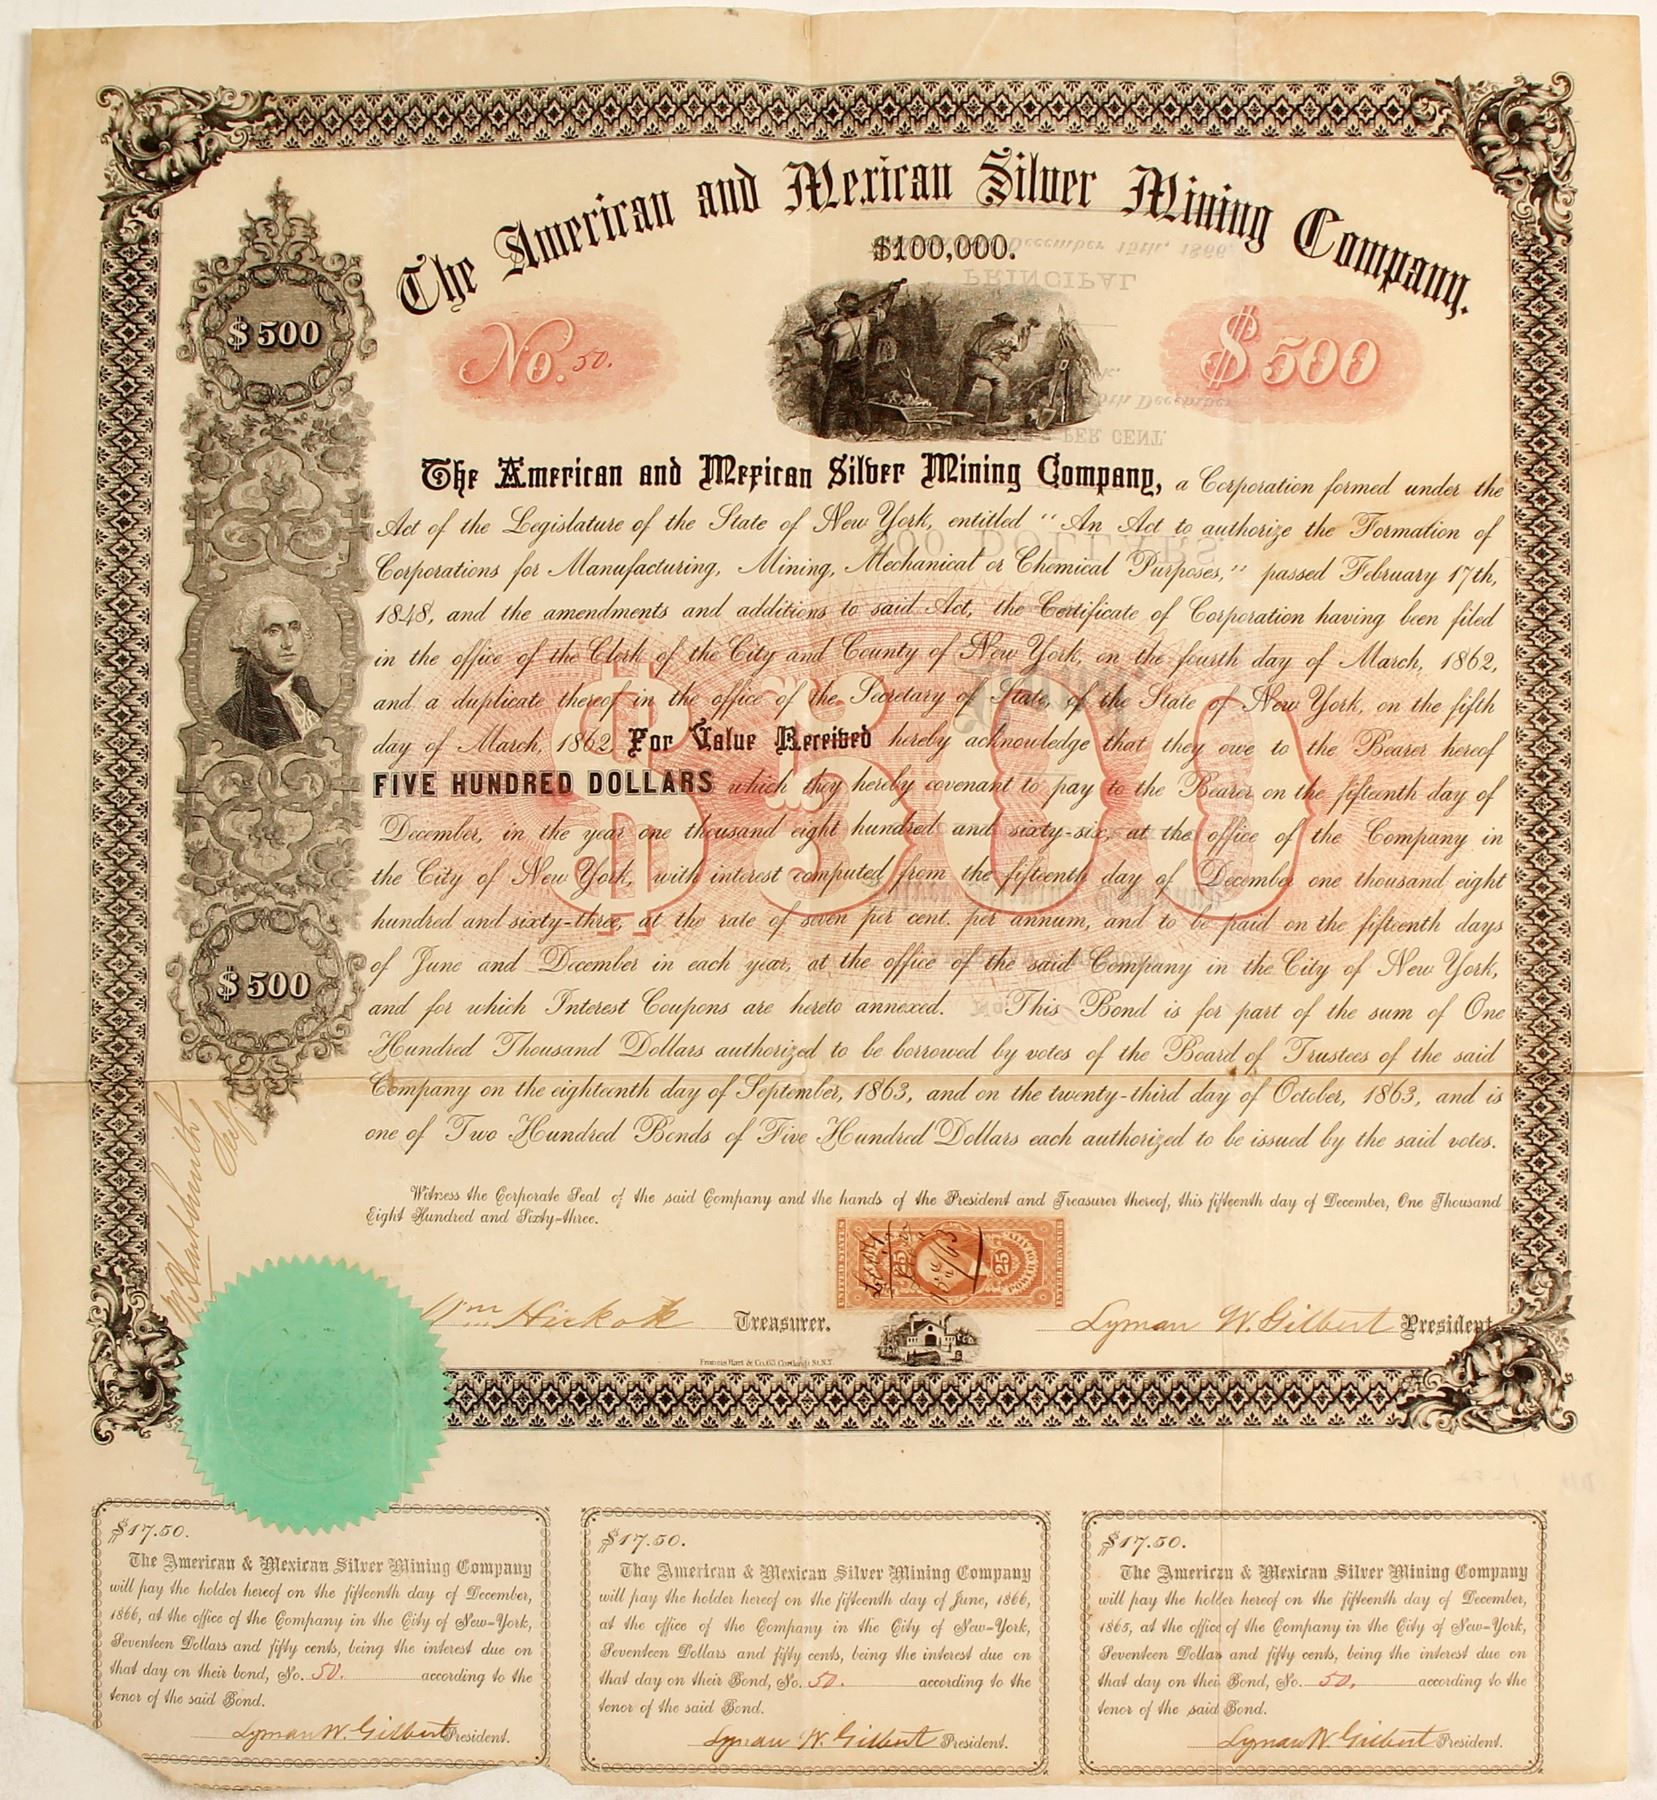 The American and Mexican Silver Mining Company.
$100,000.
$500
No. 50.
$500
The American and Mexican Silver Mining Company, a Corporation formed under the
Act of the Legislature of the State of New York, entitled "An Act to authorize the Formation of
Corporations for Manufacturing, Mining, Mechanical or Chemical Purposes," passed February 17th,
1848, and the amendments and additions to said Act, the Certificate of Corporation having been filed
in the office of the Clerk of the City and County of New York, on the fourth day of March, 1862,
and a duplicate thereof in the office of the Secretary of State, of the State of New York, on the fifth
day of March, 1862, For Value Received hereby acknowledge that they owe to the Bearer hereof
FIVE HUNDRED DOLLARS which they hereby covenant to pay to the Bearer on the fifteenth day of
December, in the year one thousand eight hundred and sixty-six, at the office of the Company in
the City of New York, with interest computed from the fifteenth day of December one thousand eight
hundred and sixty-three, at the rate of seven per cent. per annum, and to be paid on the fifteenth days
of June and December in each year, at the office of the said Company in the City of New York,
and for which Interest Coupons are hereto annexed. This Bond is for part of the sum of One
Hundred Thousand Dollars authorized to be borrowed by votes of the Board of Trustees of the said
Company on the eighteenth day of September, 1863, and on the twenty-third day of October, 1863, and is
one of Two Hundred Bonds of Five Hundred Dollars each authorized to be issued by the said votes.
$500
$500
Witness the Corporate Seal of the said Company and the hands of the President and Treasurer thereof, this fifteenth day of December, One Thousand
Eight Hundred and Sixty-three.
UNITED STATES
25 25
INTER. REVENUE
Wm Hickok Treasurer.
Lyman W. Gilbert President
Francis Hart & Co. 63 Cortlandt St. N.Y.
$17.50.
The American & Mexican Silver Mining Company
will pay the holder hereof on the fifteenth day of December,
1866, at the office of the Company in the City of New-York,
Seventeen Dollars and fifty cents, being the interest due on
that day on their bond, No. 50. according to the
tenor of the said Bond.
Lyman W. Gilbert President.
$17.50.
The American & Mexican Silver Mining Company
will pay the holder hereof on the fifteenth day of June, 1866,
at the office of the Company in the City of New-York,
Seventeen Dollars and fifty cents, being the interest due on
that day on their Bond, No. 50. according to the
tenor of the said Bond.
Lyman W. Gilbert President.
$17.50.
The American & Mexican Silver Mining Company
will pay the holder hereof on the fifteenth day of December,
1865, at the office of the Company in the City of New-York,
Seventeen Dollars and fifty cents, being the interest due on
that day on their Bond, No. 50. according to the
tenor of the said Bond.
Lyman W. Gilbert President.